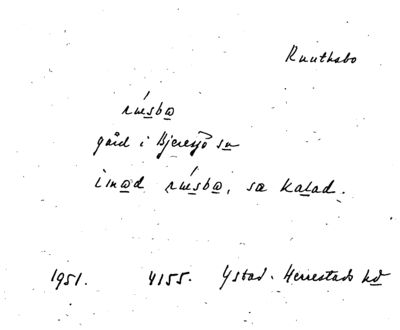 Ruuthsbo
rúsbo
gård i Bjeresjö sn
inod rúsbo, so kalad.
1951. 4155. Ystad. Herrestads hd